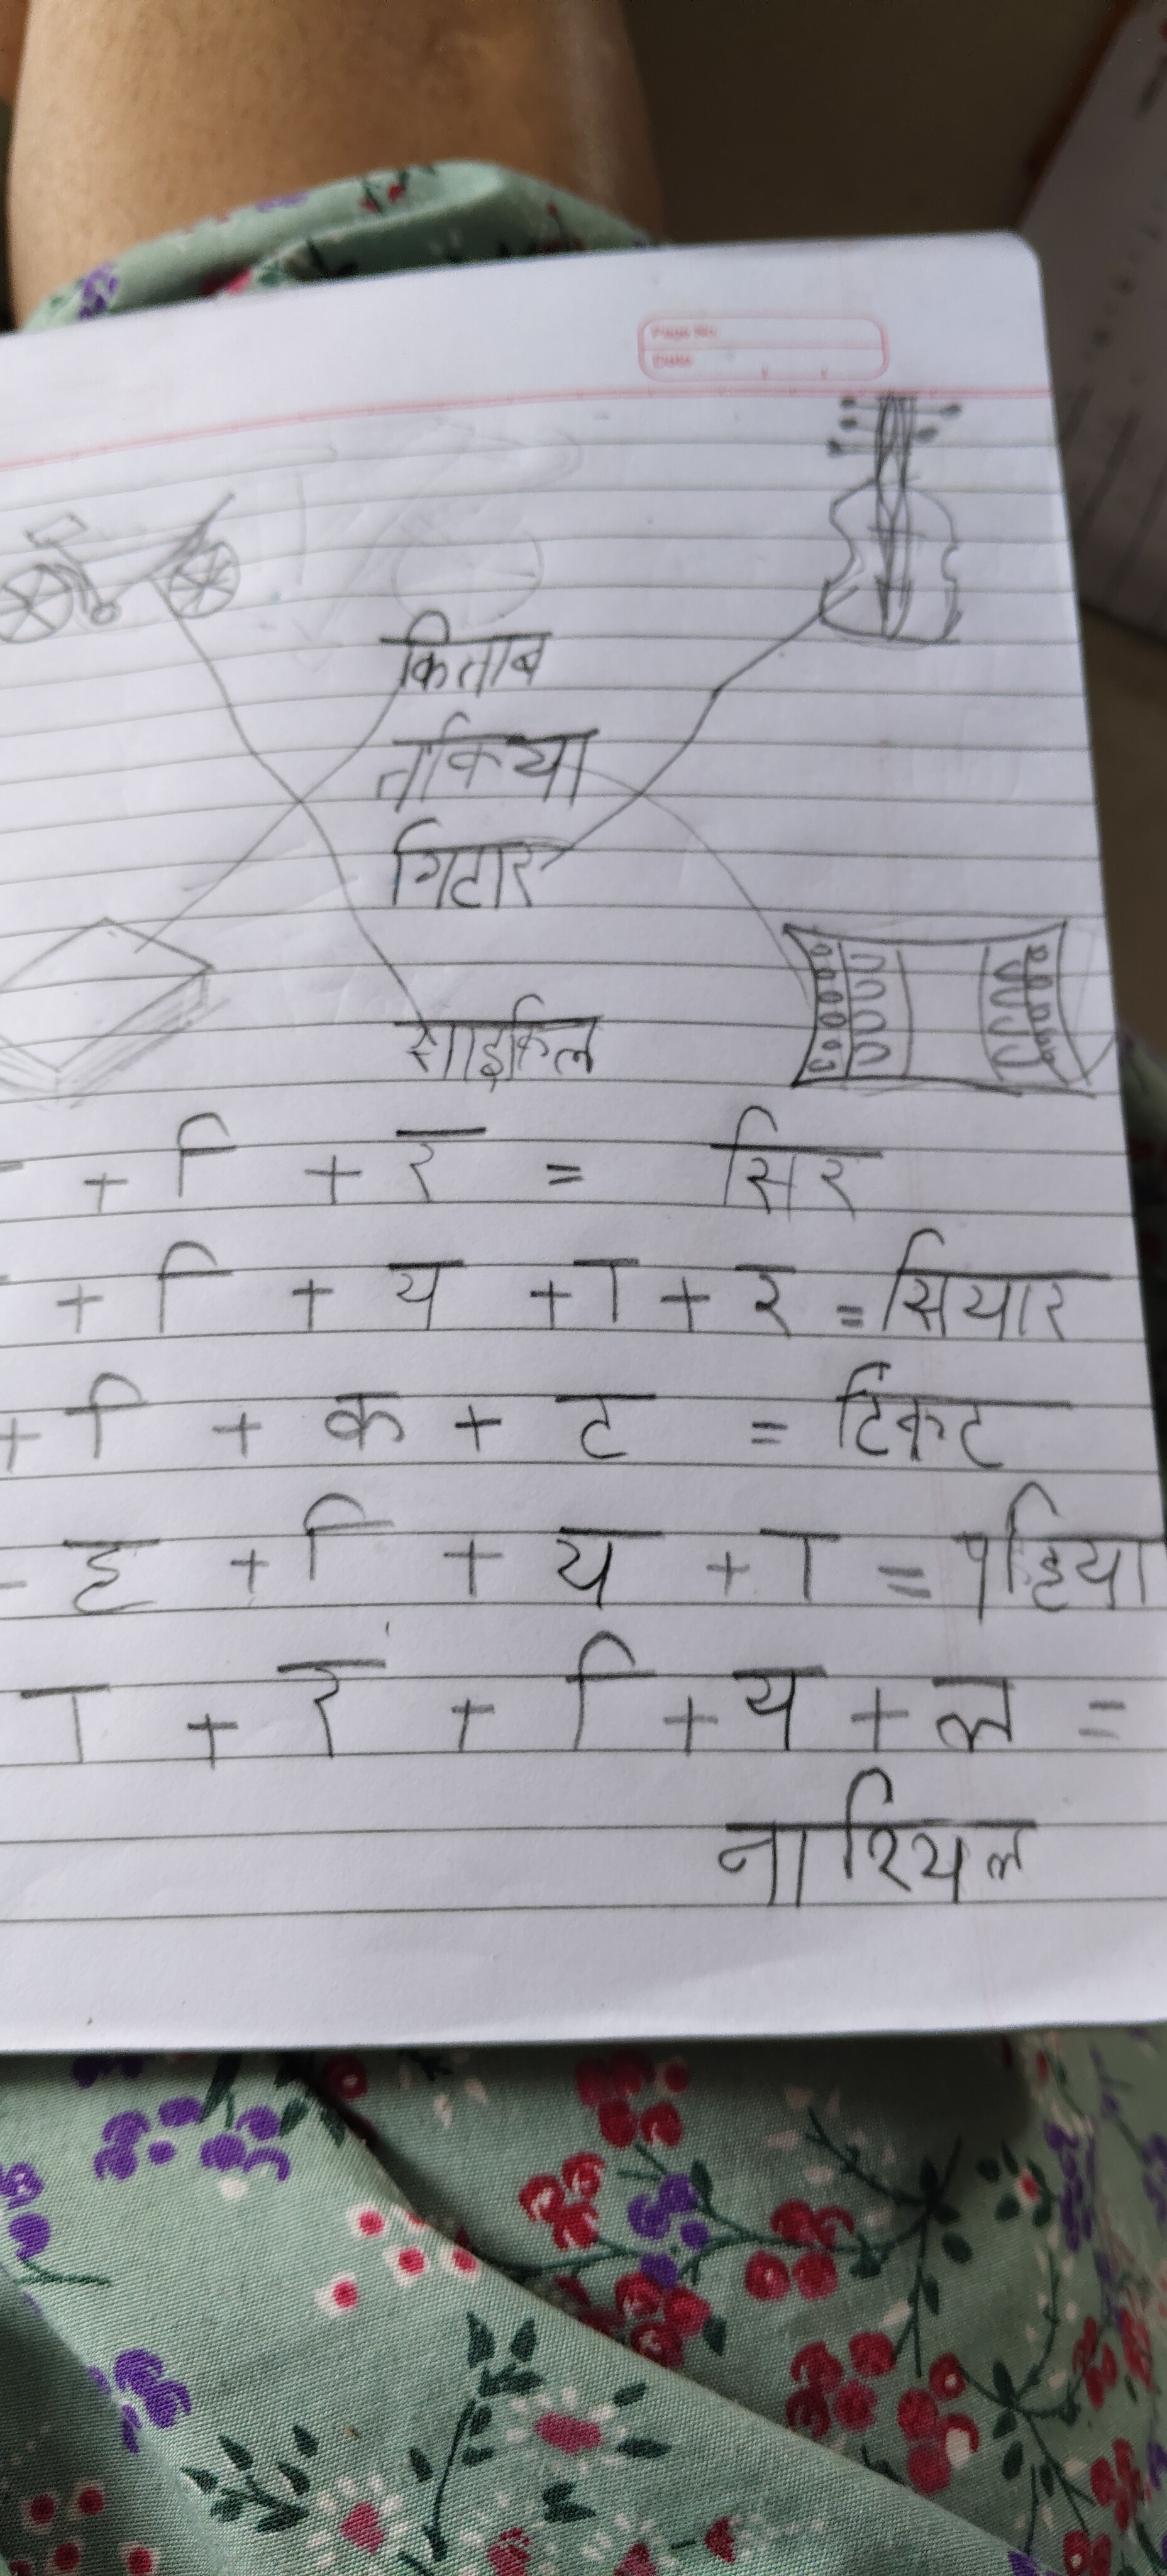 Page No.
Date
किताब
तकिया
गिटार
साइकिल
+ ि + र = सिर
+ ि + य + ा + र = सियार
+ ि + क + ट = टिकट
ह + ि + य + ा = पहिया
ा + र + ि + य + ल =
नारियल